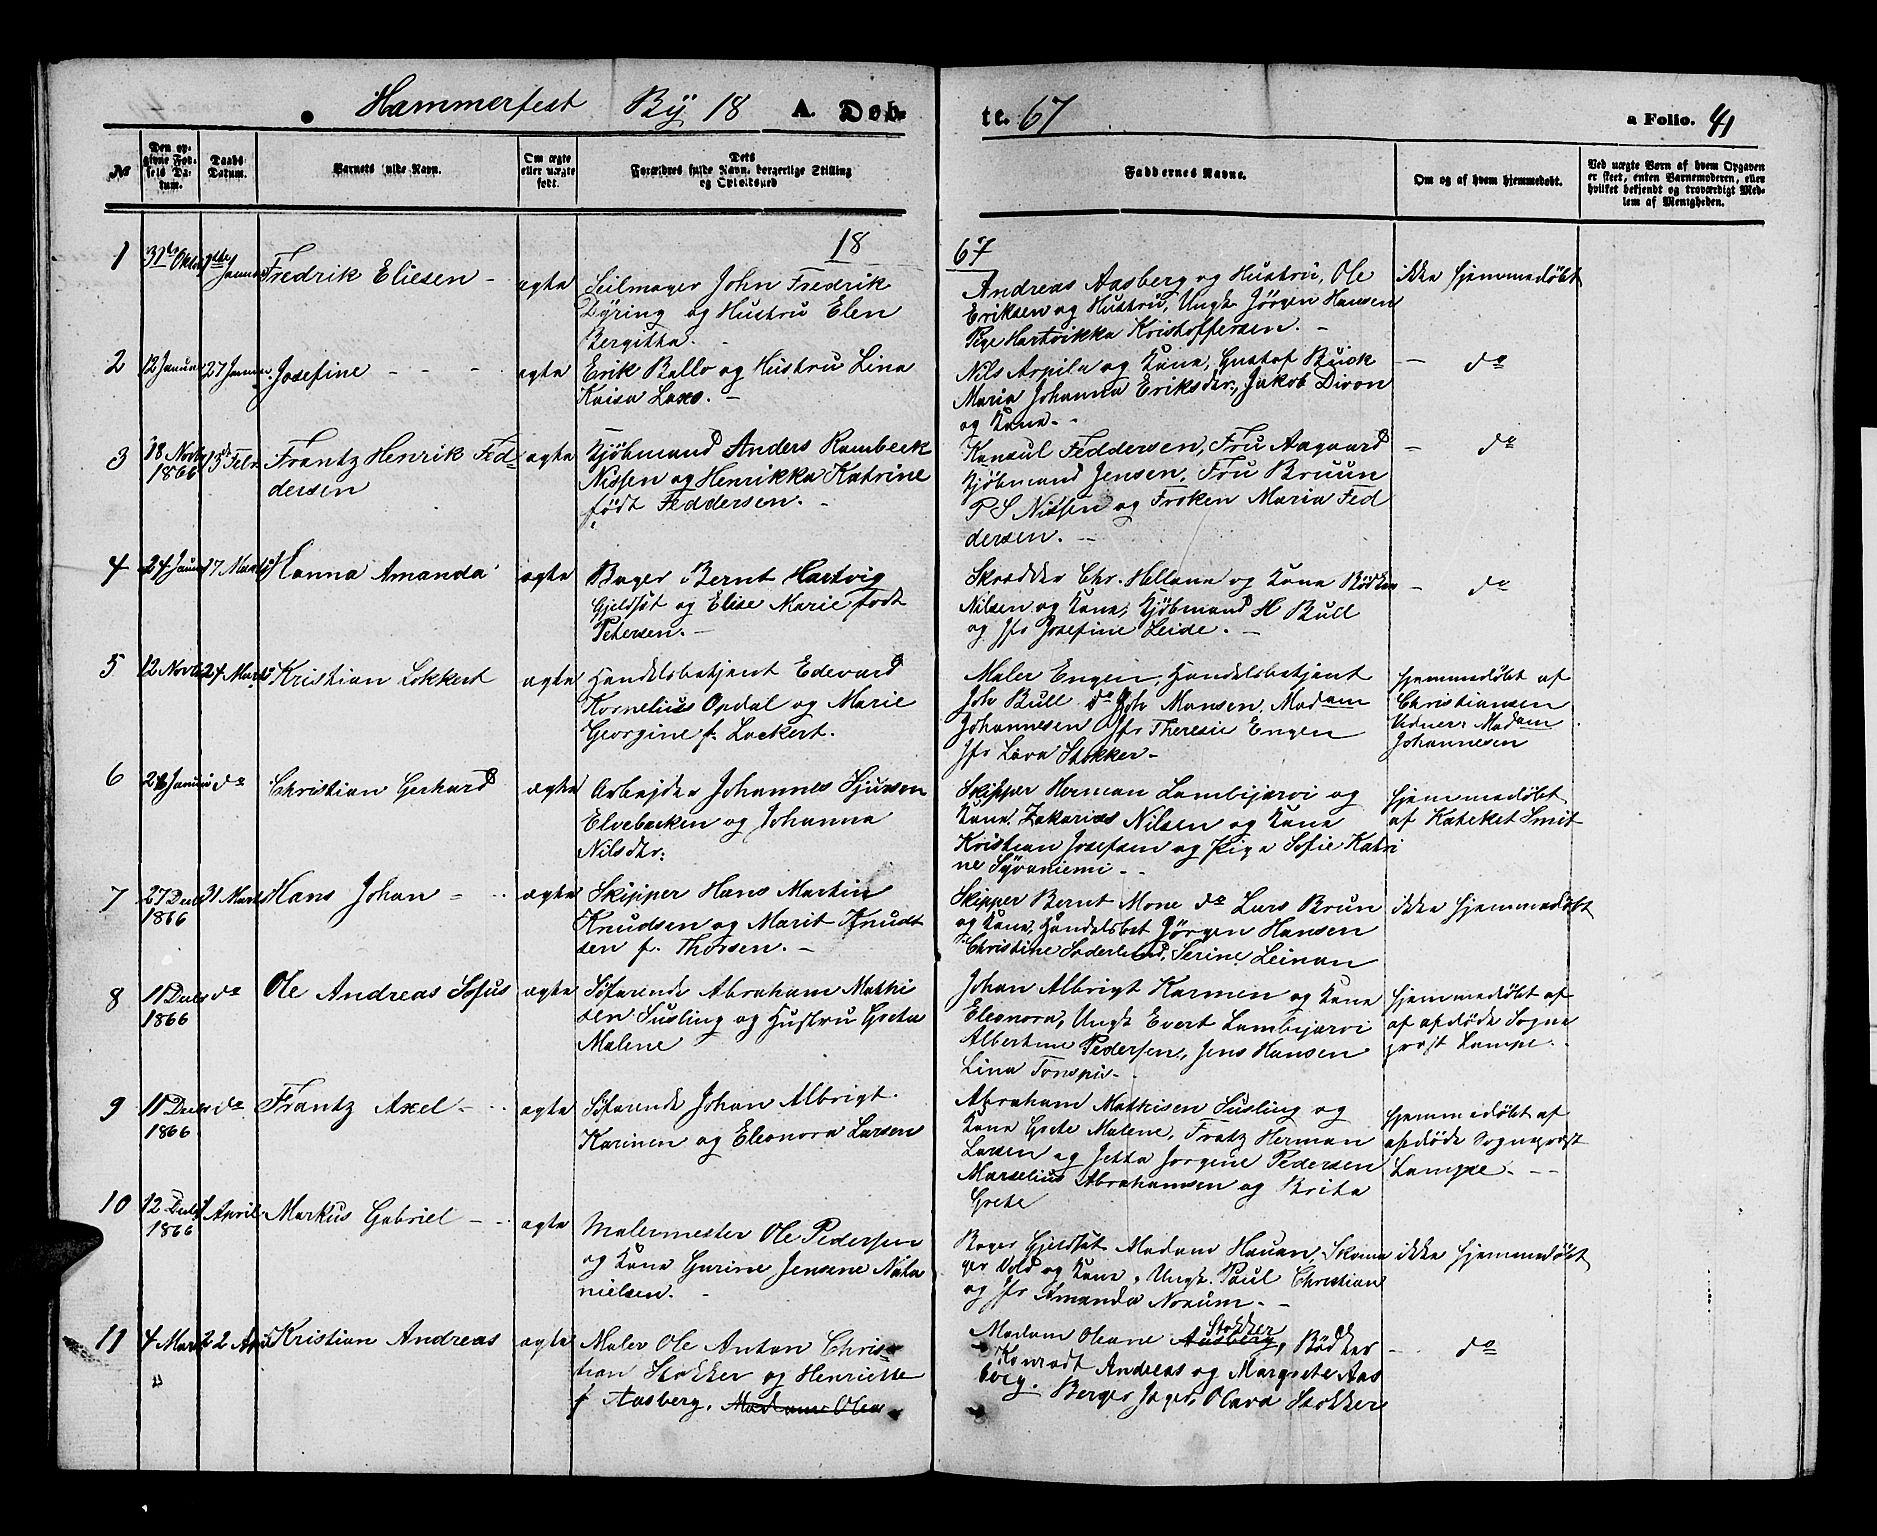 Hammerfest By 18 A. Døb-
te. 67
a Folio. 41
№
Den opgivne Fødsels Datum.
Daabs Datum.
Barnets fulde Navn.
Om ægte eller uægte født.
Dets Forældres fulde Navn, borgerlige Stilling og Opholdssted
Faddernes Navne.
Om og af hvem hjemmedøbt.
Ved uægte Børn af hvem Opgaven er skeet, enten Barnemoderen, eller hvilket bekjendt og troværdigt Medlem af Menigheden.
18
67
1
31te Oktbr
Januar
Fredrik Eliesen -
ægte
Seilmager John Fredrik
Dyring og Hustru Elen
Bergitta.
Andreas Aasberg og Hustru, Ole
Eriksen og Hustru, Ungk. Jörgen Hansen
Pige Hartvikka Kristoffersen. -
ikke hjemmedøbt
2
12 Januar
27 Januar
Josefine - - -
ægte
Erik Ballo og Hustru Lina
Kaisa Laxo. -
Nils Arpila og Kone, Gustaf Buck
Maria Johanna Eriksdtr., Jakob Divon
og Kone. -
- do
3
18 Novbr
1866
15de Febr
Frantz Henrik Fed-
dersen
ægte
Kjøbmand Anders Rambeck
Nissen og Henrikka Katrine
født Feddersen. -
Konsul Feddersen, Fru Aagaard
Kjøbmand Jensen, Fru Bruun
P S Nissen og Frøken Maria Fed
dersen. -
- do
4
24 Januar
17 Marts
Hanna Amanda
ægte
Bager Bernt Hartvig
Gjeldsöt og Elise Marie født
Petersen. -
Skrædder Chr. Hellana og Kone Bødker
Nilsen og Kone, Kjøbmand H Bull
og Jfr Josefine Leide. -
- do
5
12 Novbr
24 Marts
Kristian Lokkert
ægte
Handelsbetjent Edevard
Kornelius Opdal og Marie
Georgine f. Lockert.
Maler Engen, Handelsbetjent
Joh Bull do Joh Monsen, Madam
Johannesen Jfr Theresie Engen
Jfr Lava Stokker -
hjemmedøbt af
Christiansen
Udner: Madam
Johannesen
6
24 Januar
do
Christian Gerhard
ægte
Arbejder Johannes Sjursen
Elvebakken og Johanna
Nilsdtr.
Skipper Herman Lambijarvi og
Kone, Zakarias Nilsen og Kone
Kristian Josefsen og Pige Sofie Katri
ne Syvaniemi - -
hjemmedøbt
af Kateket Smit
7
27 Decbr
1866
31 Marts
Hans Johan -
ægte
Skipper Hans Martin
Knudsen og Marit Knudt
sen f. Thorsen. -
Skipper Bernt Mone do Lars Brun
og Kone, Handelsbet Jörgen Hansen
Christine Soderlund, Serine Leinan
ikke hjemmedøbt
8
11 Decbr
1866
do
Ole Andreas Sofus
ægte
Søfarende Abraham Mathi
sen Susling og Hustru Greta
Malene
Johan Albrigt Karinen og Kone
Eleonora, Ungk Evert Lambijarvi
Albertine Pedersen, Jens Hansen
Lina Tonspii. -
hjemmedøbt af
af afdøde Sogne
præst Lampe. -
9
11 Decbr
1866
do
Frantz Axel - -
ægte
Søfarende Johan Albrigt
Karinen og Eleonora Larsen
Abraham Mathisen Susling og
Kone Grete Malene, Fratz Herman
Larsen og Jetta Jorgine Pedersen
Marselius Abrahamsen og Brita
Grete
hjemmedøbt af
afdøde Sognepræst
Lampe - - -
10
12 Decbr
1866
1 April
Markus Gabriel - -
ægte
Malermester Ole Pedersen
og Kone Gurine Jensine Nata
nielsen. -
Bager Gjeldsöt Madam Hauan, Skoma
ger Vold og Kone, Ungk. Paul Christian
og Jfr Amanda Norum. -
ikke hjemmedøbt
11
4 Marts
22 April
Kristian Andreas
ægte
Maler Ole Anton Chris-
tian Stokker og Henriette
f Aasberg, Madame Olea
Madam Oleane Aasberg Stokker, Bødker
Konradt Andreas og Margrete Aas
berg. Berger Jager, Olava Stokker
- do